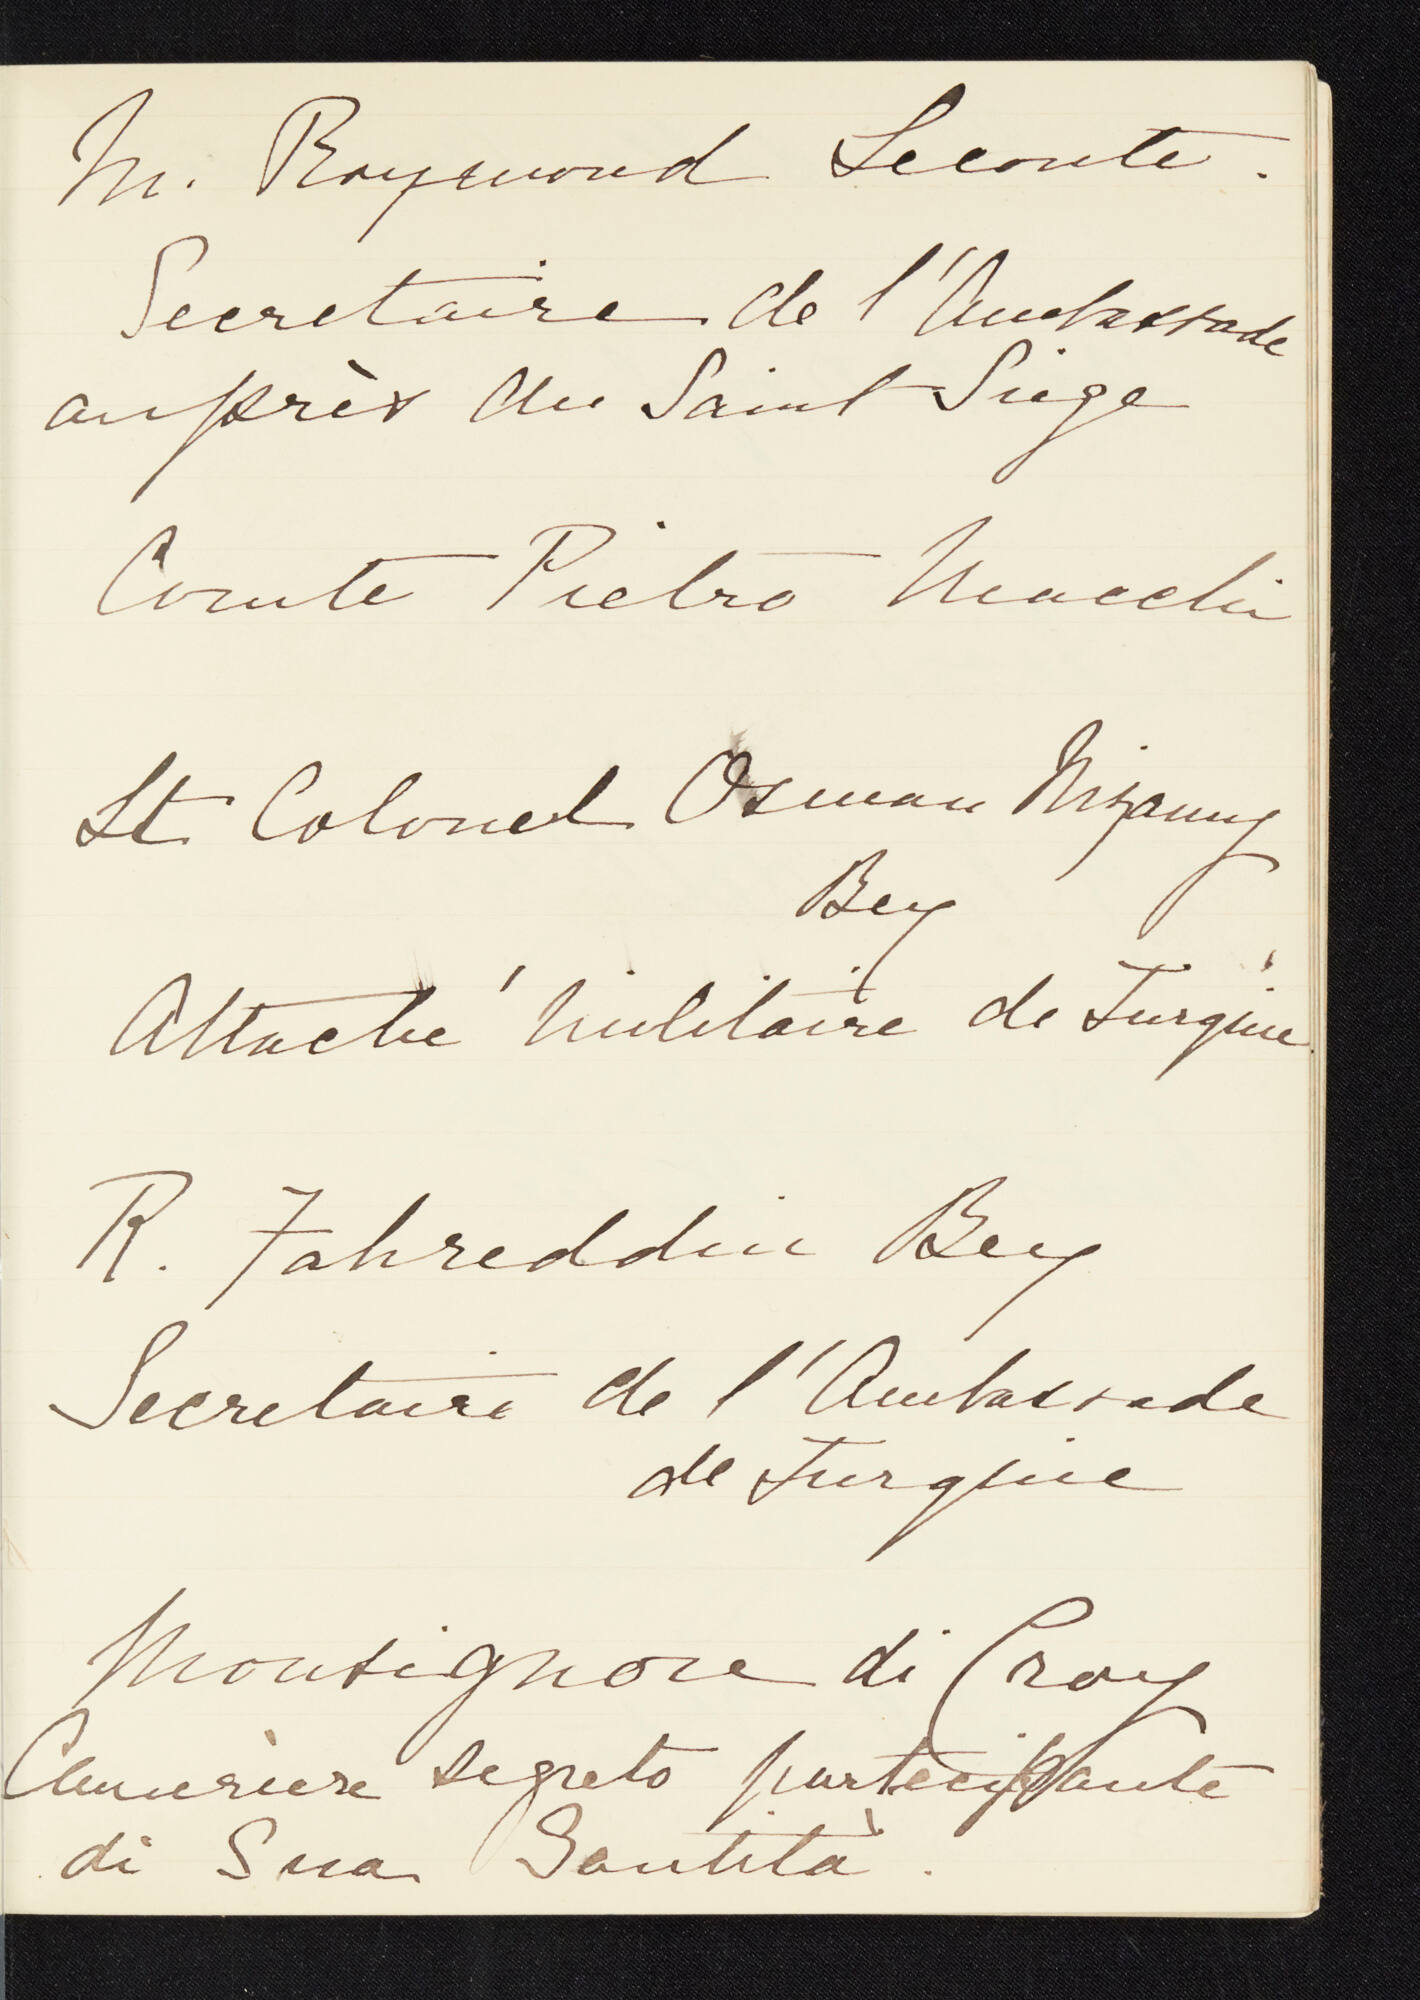 M. Raymond Lecomte.
Secretaire de l'Ambassade
auprès du Saint Siège
Comte Pietro Macchi
Lt Colonel Osman Nizamy
Bey
Attaché Militaire de Turquie
R. Fahreddin Bey
Secretaire de l'Ambassade
de Turquie
Monsignore di Croy
Camerière segreto partecipante
di Sua Santità.